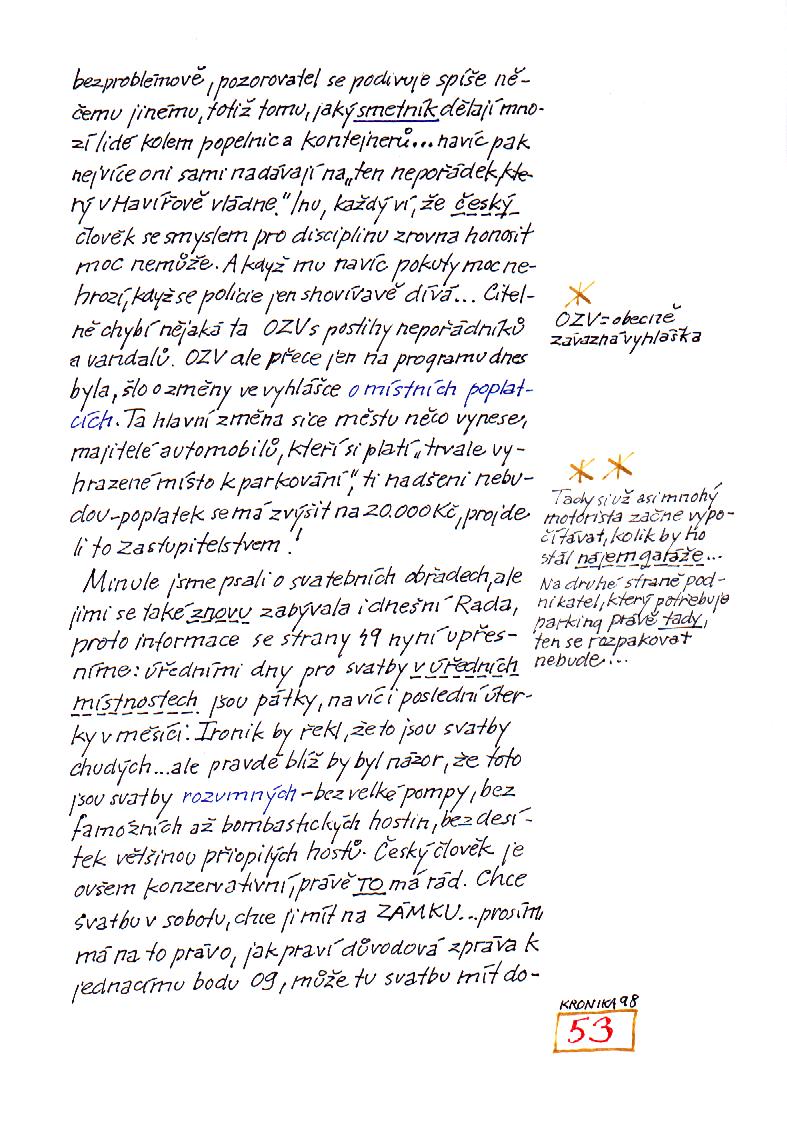 bezproblémově, pozorovatel se podivuje spíše ně-
čemu jinému, totiž tomu, jaký smetník dělají mno-
zí lidé kolem popelnic a kontejnerů... navíc pak
nejvíce oni sami nadávají na „ten nepořádek, kte-
rý v Havířově vládne." Inu, každý ví, že český
člověk se smyslem pro disciplinu zrovna honosit
moc nemůže. A když mu navíc pokuty moc ne-
hrozí, když se policie jen shovívavě dívá... Citel-
ně chybí nějaká ta OZV s postihy nepořádníků
a vandalů. OZV ale přece jen na programu dnes
byla, šlo o změny ve vyhlášce o místních poplat-
cích. Ta hlavní změna sice městu něco vynese,
majitelé automobilů, kteří si platí „trvale vy-
hrazené místo k parkování", ti nadšeni nebu-
dou - poplatek se má zvýšit na 20.000 Kč, projde
li to Zastupitelstvem!
Minule jsme psali o svatebních obřadech, ale
jimi se také znovu zabývala i dnešní Rada,
proto informace se strany 49 nyní upřes-
níme: úředními dny pro svatby v úředních
místnostech jsou pátky, navíc i poslední úter-
ky v měsíci. Ironik by řekl, že to jsou svatby
chudých... ale pravdě blíž by byl názor, že toto
jsou svatby rozumných - bez velké pompy, bez
famózních až bombastických hostin, bez desí-
tek většinou přiopilých hostů. Český člověk je
ovšem konzervativní, právě TO má rád. Chce
svatbu v sobotu, chce ji mít na ZÁMKU... prosím,
má na to právo, jak praví důvodová zpráva k
jednacímu bodu 09, může tu svatbu mít do-
OZV = obecně
závazná vyhláška
Tady si už asi mnohý
motorista začne vypo-
čítávat, kolik by ho
stál nájem garáže...
Na druhé straně pod-
nikatel, který potřebuje
parking právě tady,
ten se rozpakovat
nebude...
KRONIKA 98
53